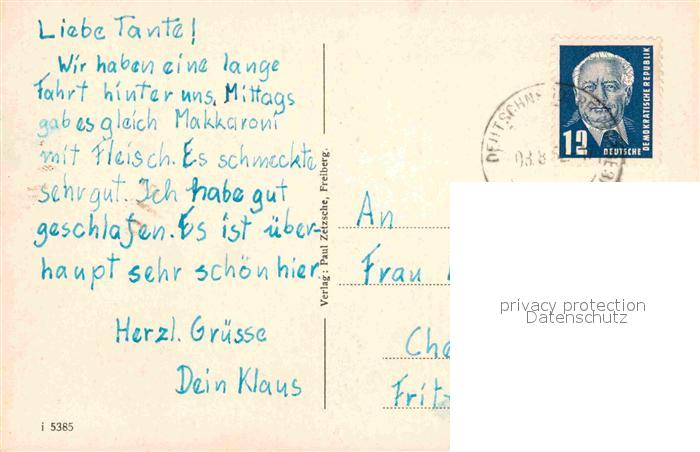 Liebe Tante!
Wir haben eine lange
Fahrt hinter uns. Mittags
gab es gleich Makkaroni
mit Fleisch. Es schmeckte
sehr gut. Ich habe gut
geschlafen. Es ist über-
haupt sehr schön hier.
Herzl. Grüsse
Dein Klaus
i 5385
Verlag: Paul Zetzsche, Freiberg.
12
DEUTSCHE
DEMOKRATISCHE REPUBLIK
An
Frau
Che
Fritz
privacy protection
Datenschutz